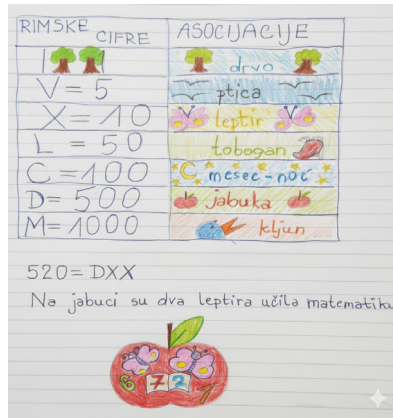 RIMSKE CIFRE ASOCIJACIJE
I drvo
V = 5 ptica
X = 10 leptir
L = 50 tobogan
C = 100 mesec-noć
D = 500 jabuka
M = 1000 kljun
520 = DXX
Na jabuci su dva leptira učila matematiku
7 2